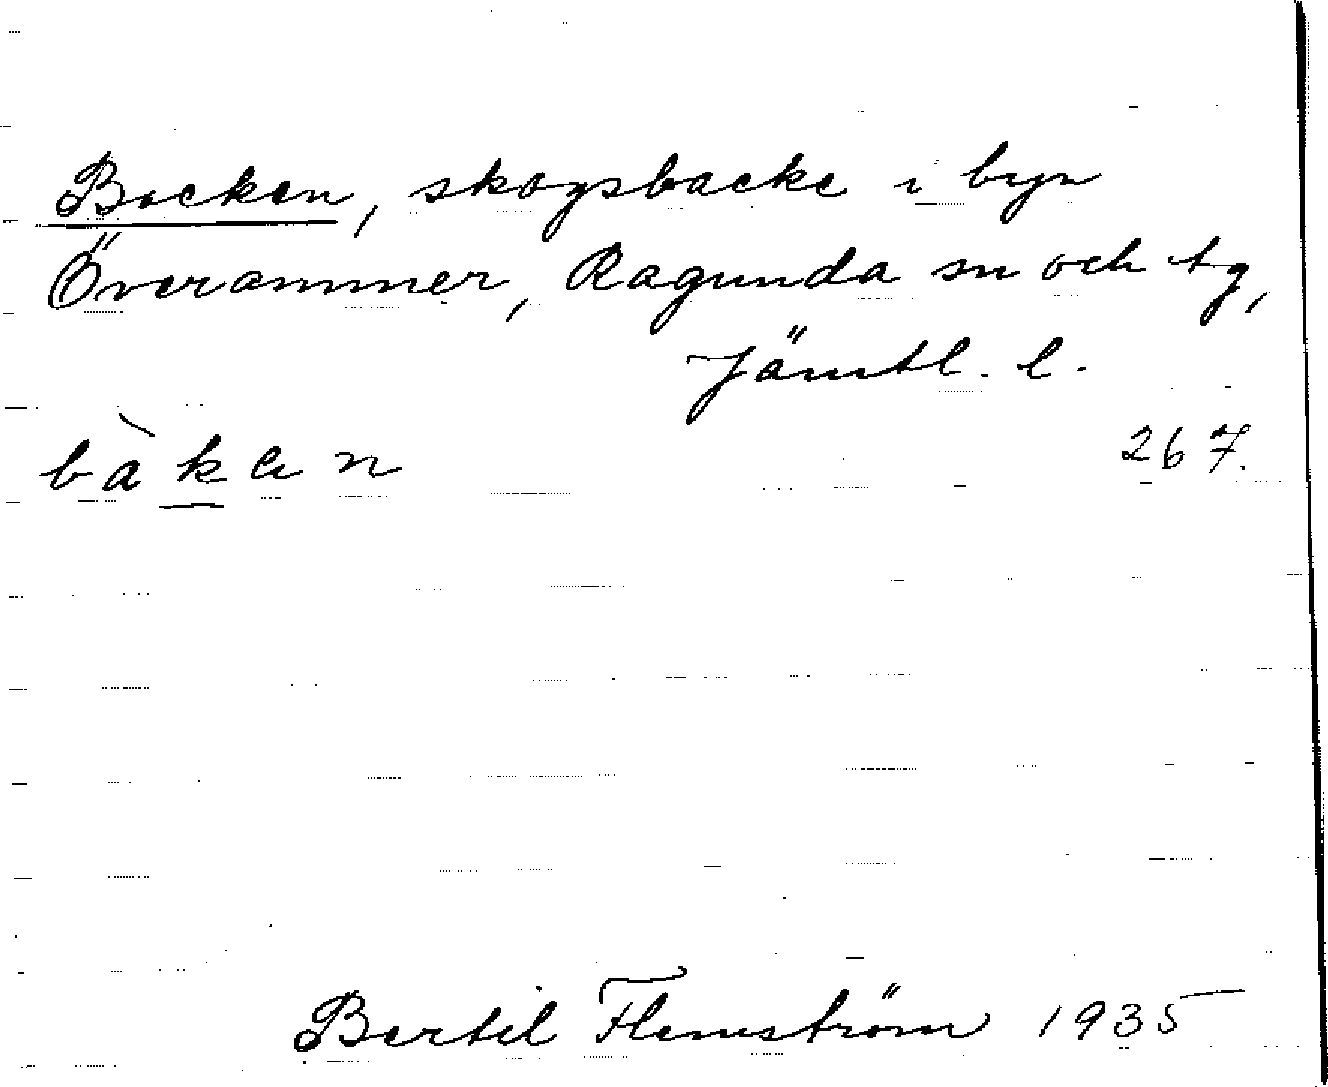 Backen, skogsbacke i byn
Överammer, Ragunda sn och tg,
Jämtl. l.
267.
bàkan
Bertil Flemström 1935